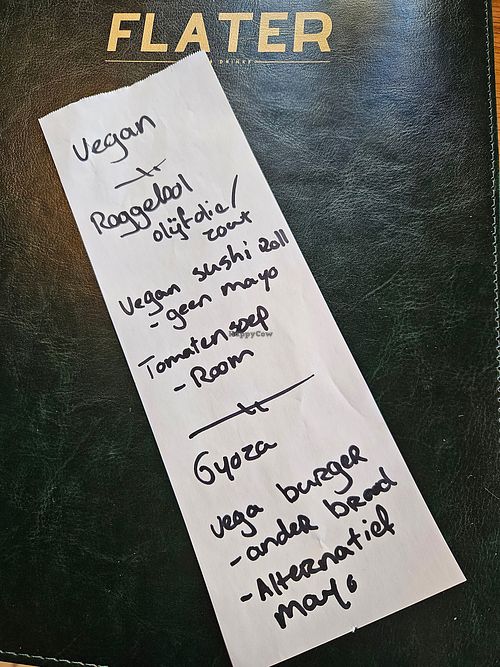 FLATER
Vegan
Roggebol
olijfolie/
zout
Vegan sushi roll
- geen mayo
Tomatensoep
- Room
HappyCow
Gyoza
Vega burger
- ander brood
- Alternatief
mayo